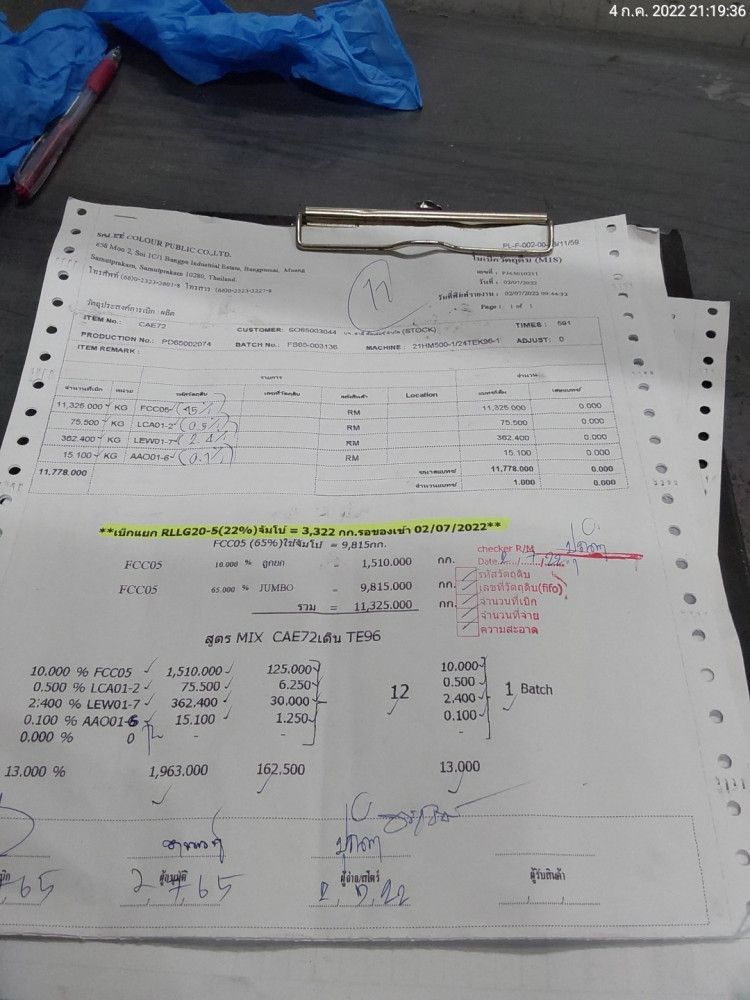 4 ก.ค. 2022 21:19:36
COLOUR PUBLIC CO.,LTD.
858 Moo 2, Soi 1C/1 Bangpu Industrial Estate, Bangpumai, Muang
Samutprakarn, Samutprakarn 10280, Thailand.
โทรศัพท์ (6630-2323-2601-8 โทรสาร (6630-2323-2227-8
PL-F-002-00 /11/59
ใบเบิกวัตถุดิบ (MIS)
เลขที่ :
วันที่ : 02/07/2022
วันที่พิมพ์รายงาน : 02/07/2022 09:44:22
Page : 1 of 1
11
วัตถุประสงค์การเบิก : ผลิต
ITEM No.: CAE72 CUSTOMER: SO65003044 (STOCK) TIMES : 591
PRODUCTION No.: PD65002074 BATCH No.: FB65-003136 MACHINE : 21HM500-1/24TEK96-1 ADJUST: 0
ITEM REMARK :
รายการ จำนวน
จำนวนที่เบิก หน่วย รหัสวัตถุดิบ เลขที่วัตถุดิบ คลังสินค้า Location
11,325.000 KG FCC05 RM 11,325.000 0.000
75.500 KG LCA01-2 (0.5%) RM 75.500 0.000
362.400 KG LEW01-7 (2.4%) RM 362.400 0.000
15.100 KG AAO01-6 (0.1%) RM 15.100 0.000
11,778.000 11,778.000 0.000
1.000 0.000
**เบิกแยก RLLG20-5(22%)จัมโบ้ = 3,322 กก.รอของเข้า 02/07/2022**
FCC05 (65%)ใช้จัมโบ้ = 9,815กก.
FCC05 10.000 % ถูกยก = 1,510.000 กก.
FCC05 65.000 % JUMBO = 9,815.000 กก.
รวม = 11,325.000 กก.
checker R/M
Date 2 / 7 / 22
รหัสวัตถุดิบ
เลขที่วัตถุดิบ(fifo)
จำนวนที่เบิก
จำนวนที่จ่าย
ความสะอาด
สูตร MIX CAE72เดิน TE96
10.000 % FCC05 1,510.000 125.000 10.000
0.500 % LCA01-2 75.500 6.250 0.500
2.400 % LEW01-7 362.400 30.000 12 2.400 1 Batch
0.100 % AAO01-6 15.100 1.250 0.100
0.000 % 0 - - -
13.000 % 1,963.000 162.500 13.000
ผู้อนุมัติ ผู้จ่าย/สโตร์ ผู้รับสินค้า
65 2 7 65 2 7 22